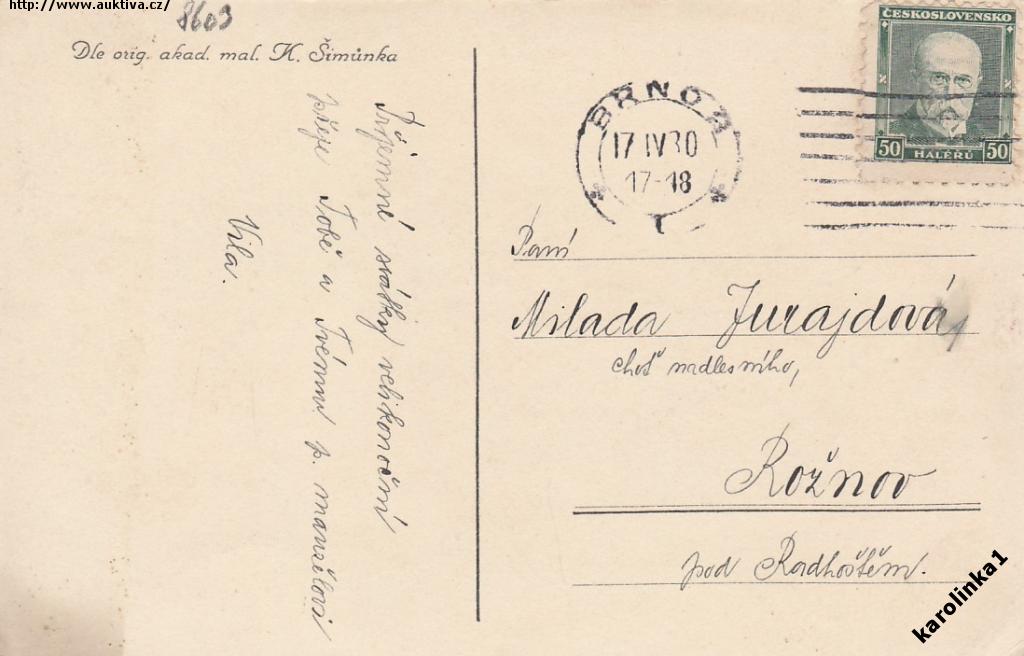 http://www.auktiva.cz/
8603
Dle orig. akad. mal. K. Šimůnka
Příjemné svátky velikonoční
přeje Tobě a Tvému p. manželovi
Vila.
BRNO 2
17 IV 30
17-18
1
ČESKOSLOVENSKO
50 HALÉŘŮ 50
Paní
Milada Jurajdová,
choť nadlesního,
Rožnov
pod Radhoštěm.
karolinka1